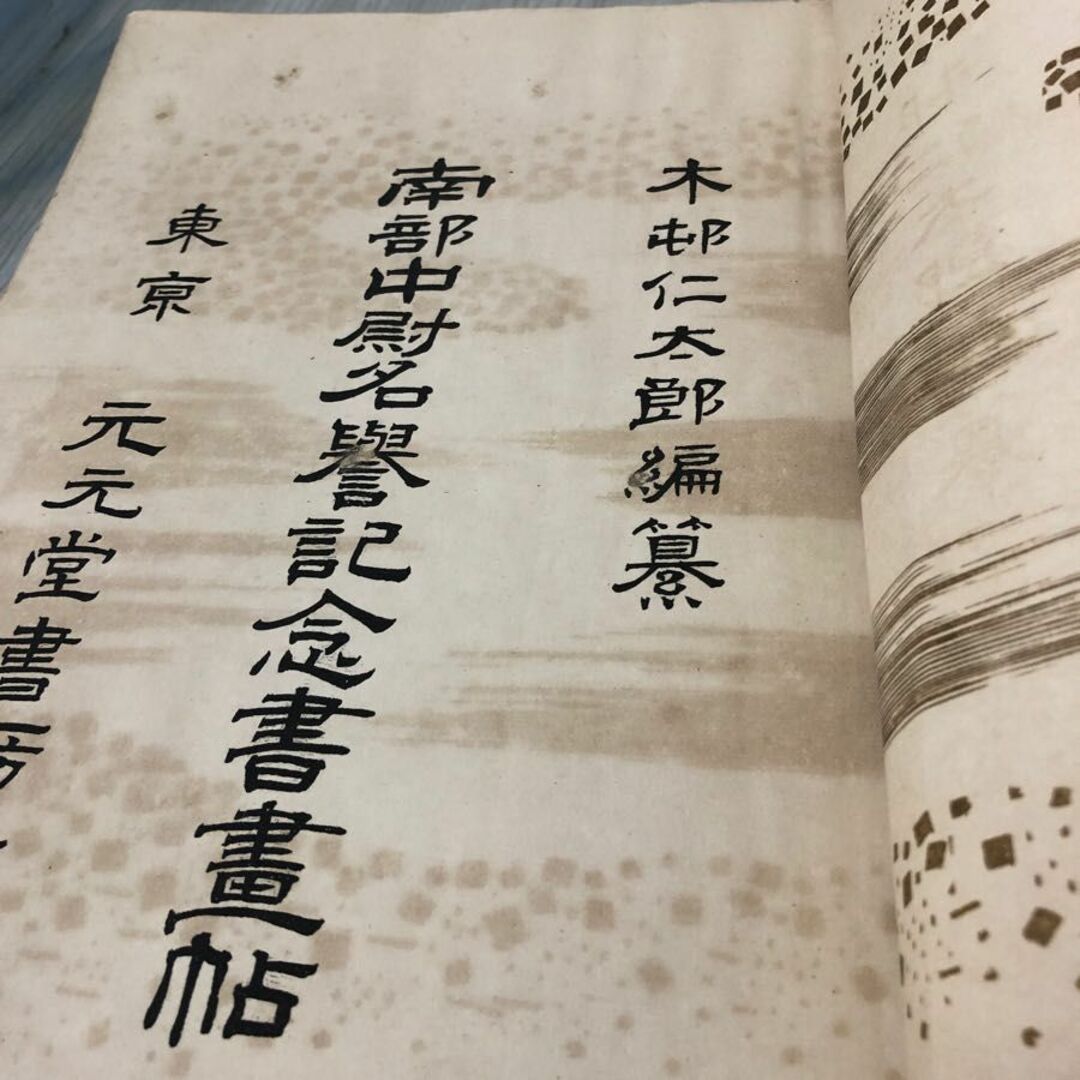 木邨仁太郎編纂
南部中尉名譽記念書畫帖
東京 元元堂書房